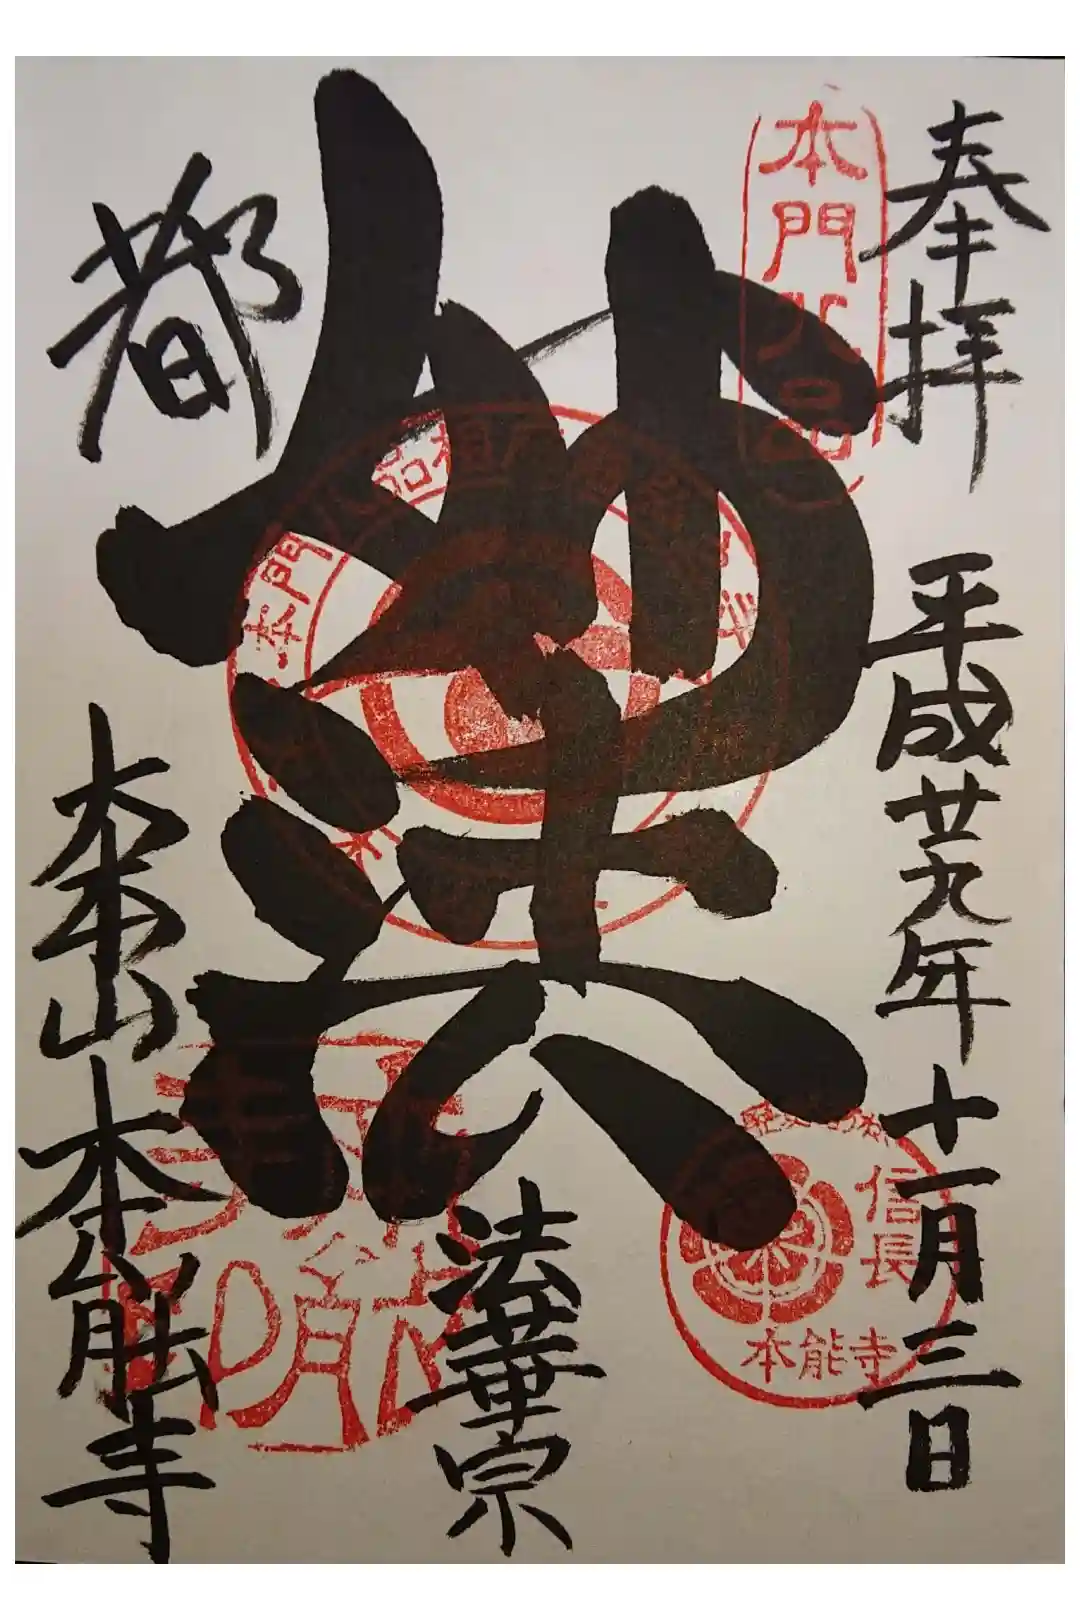 奉拝
平成廿九年十一月三日
本門八品
妙法
法華宗
信長
本能寺
都
大本山本能寺